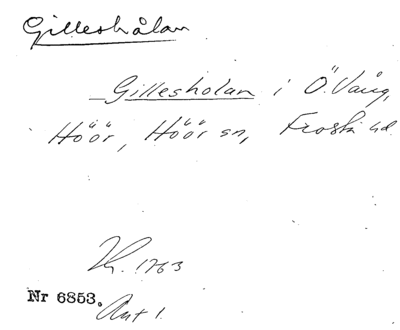 Gilleshålan
Gillesholan i Ö. Vång,
Höör, Höör sn, Frosta hd.
1763
Nr 6853.
Akt 1.